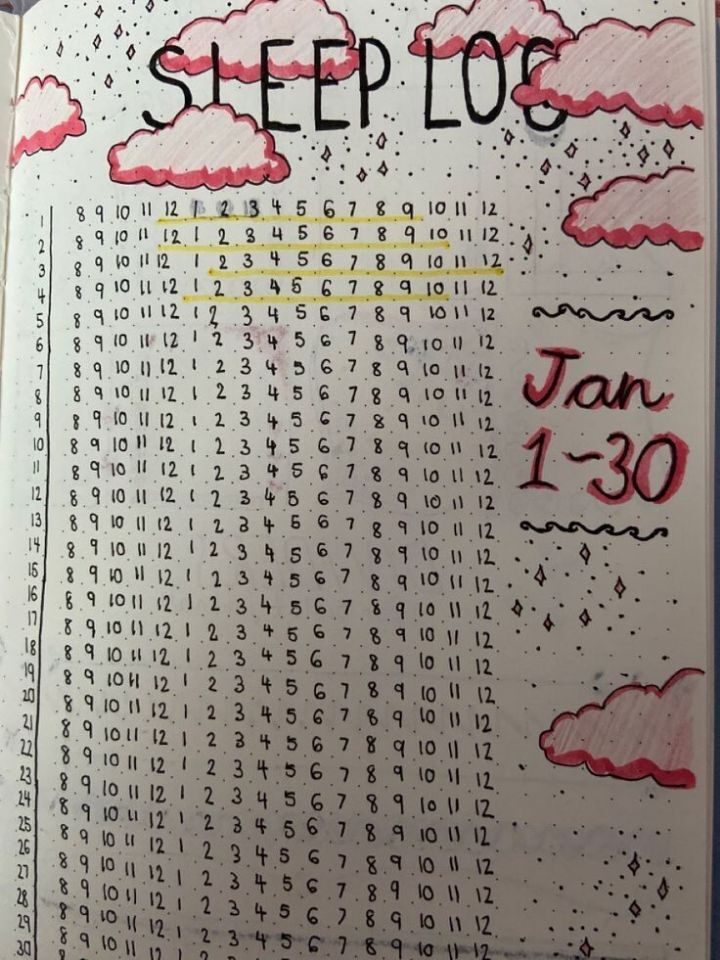 SLEEP LOG
1 8 9 10 11 12 1 2 3 4 5 6 7 8 9 10 11 12
2 8 9 10 11 12 1 2 3 4 5 6 7 8 9 10 11 12
3 8 9 10 11 12 1 2 3 4 5 6 7 8 9 10 11 12
4 8 9 10 11 12 1 2 3 4 5 6 7 8 9 10 11 12
5 8 9 10 11 12 1 2 3 4 5 6 7 8 9 10 11 12
6 8 9 10 11 12 1 2 3 4 5 6 7 8 9 10 11 12
7 8 9 10 11 12 1 2 3 4 5 6 7 8 9 10 11 12
8 8 9 10 11 12 1 2 3 4 5 6 7 8 9 10 11 12
9 8 9 10 11 12 1 2 3 4 5 6 7 8 9 10 11 12
10 8 9 10 11 12 1 2 3 4 5 6 7 8 9 10 11 12
11 8 9 10 11 12 1 2 3 4 5 6 7 8 9 10 11 12
12 8 9 10 11 12 1 2 3 4 5 6 7 8 9 10 11 12
13 8 9 10 11 12 1 2 3 4 5 6 7 8 9 10 11 12
14 8 9 10 11 12 1 2 3 4 5 6 7 8 9 10 11 12
15 8 9 10 11 12 1 2 3 4 5 6 7 8 9 10 11 12
16 8 9 10 11 12 1 2 3 4 5 6 7 8 9 10 11 12
17 8 9 10 11 12 1 2 3 4 5 6 7 8 9 10 11 12
18 8 9 10 11 12 1 2 3 4 5 6 7 8 9 10 11 12
19 8 9 10 11 12 1 2 3 4 5 6 7 8 9 10 11 12
20 8 9 10 11 12 1 2 3 4 5 6 7 8 9 10 11 12
21 8 9 10 11 12 1 2 3 4 5 6 7 8 9 10 11 12
22 8 9 10 11 12 1 2 3 4 5 6 7 8 9 10 11 12
23 8 9 10 11 12 1 2 3 4 5 6 7 8 9 10 11 12
24 8 9 10 11 12 1 2 3 4 5 6 7 8 9 10 11 12
25 8 9 10 11 12 1 2 3 4 5 6 7 8 9 10 11 12
26 8 9 10 11 12 1 2 3 4 5 6 7 8 9 10 11 12
27 8 9 10 11 12 1 2 3 4 5 6 7 8 9 10 11 12
28 8 9 10 11 12 1 2 3 4 5 6 7 8 9 10 11 12
29 8 9 10 11 12 1 2 3 4 5 6 7 8 9 10 11 12
30
Jan
1-30